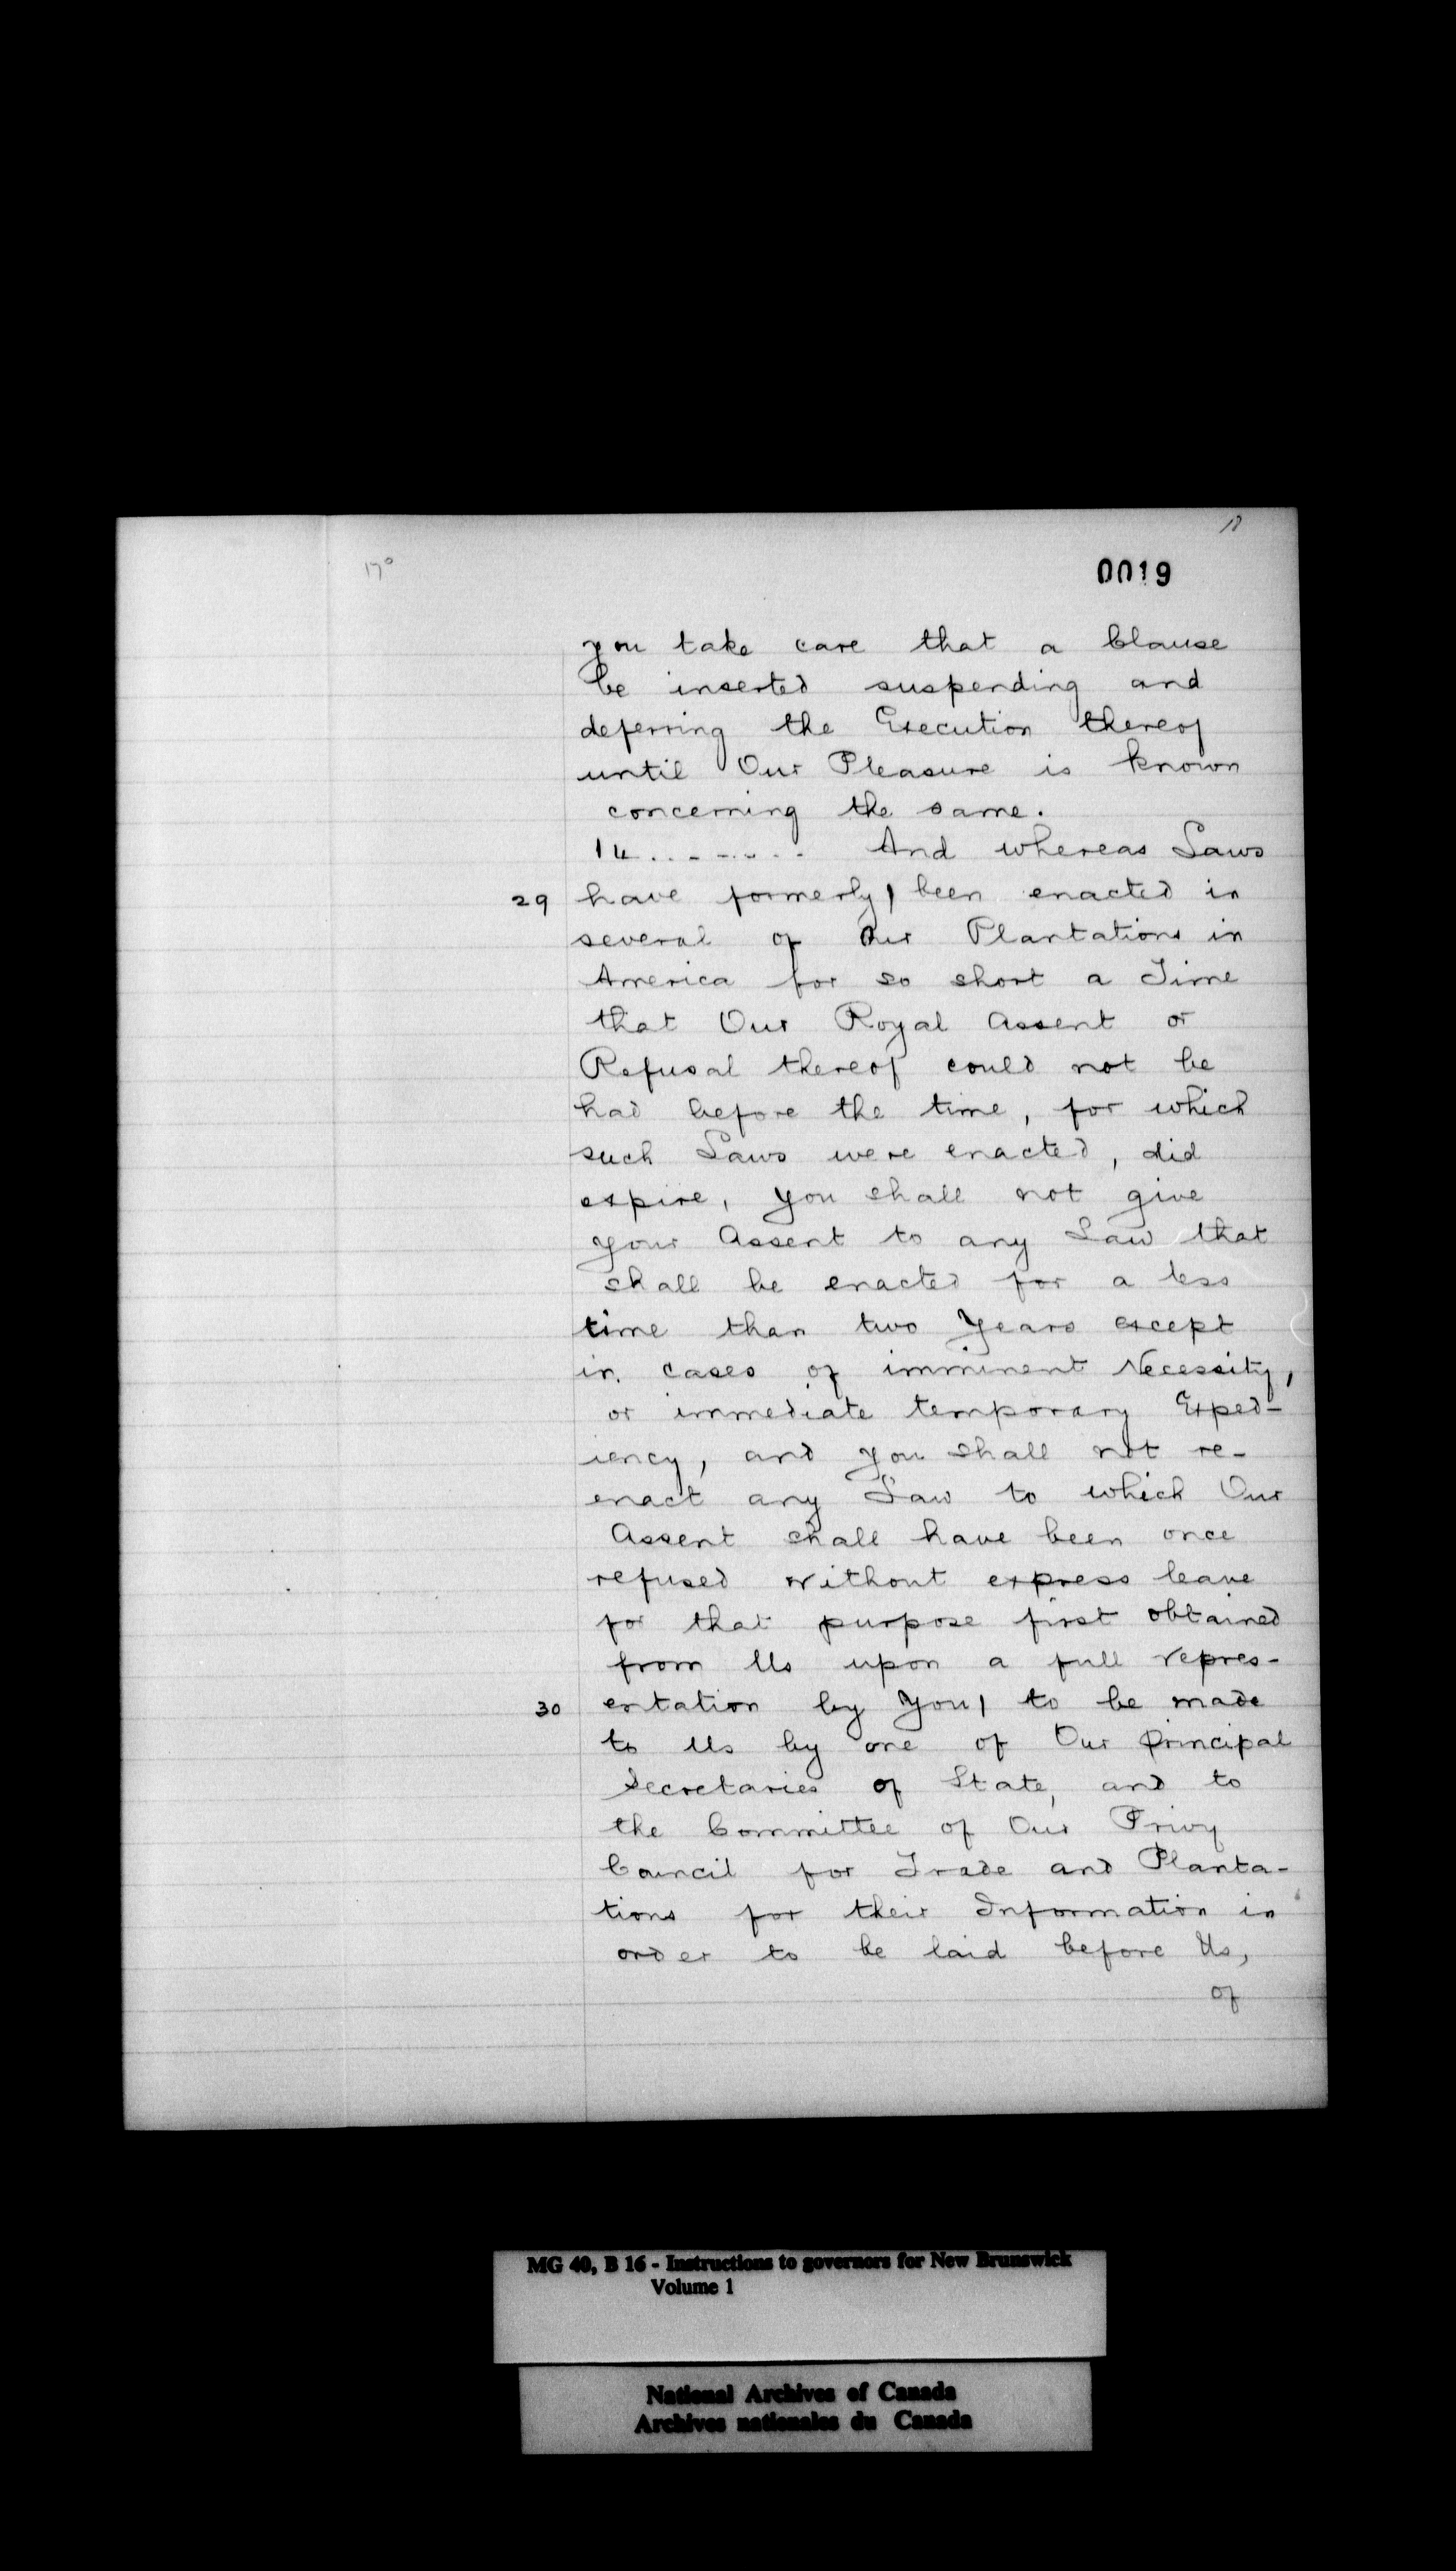 18
17°
0019
you take care that a Clause
be inserted suspending and
deferring the Execution thereof
until Our Pleasure is known
concerning the same.
14........ And whereas Laws
29 have formerly / been enacted in
several of Our Plantations in
America for so short a Time
that Our Royal Assent or
Refusal thereof could not be
had before the time, for which
such Laws were enacted, did
expire, you shall not give
your Assent to any Law that
shall be enacted for a less
time than two Years except
in cases of imminent Necessity,
or immediate temporary Exped-
iency, and you shall not re-
enact any Law to which Our
Assent shall have been once
refused without express leave
for that purpose first obtained
from Us upon a full repres-
30 entation by You / to be made
to Us by one of Our Principal
Secretaries of State, and to
the Committee of Our Privy
Council for Trade and Planta-
tions for their Information in
order to be laid before Us,
of
MG 40, B 16 - Instructions to governors for New Brunswick
Volume 1
National Archives of Canada
Archives nationales du Canada